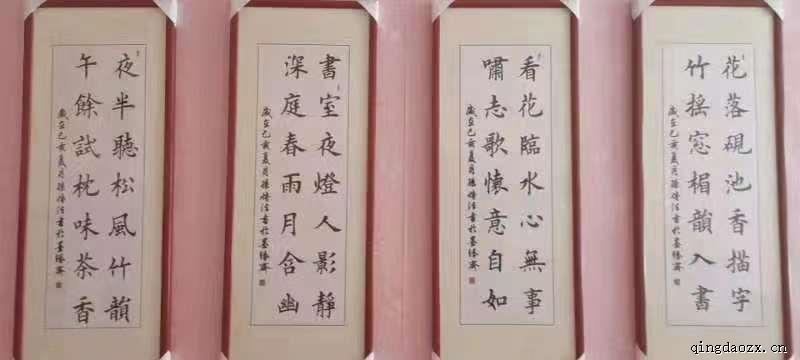 花落硯池香描字
竹摇窓楣韻入書
歲在己亥夏月孫法書於墨緣齋
看花臨水心無事
嘯志歌懷意自如
歲在己亥夏月孫法書於墨緣齋
書室夜燈人影靜
深庭春雨月含幽
歲在己亥夏月孫法書於墨緣齋
夜半聽松風竹韻
午餘試枕味茶香
歲在己亥夏月孫法書於墨緣齋
qingdaozx.cn